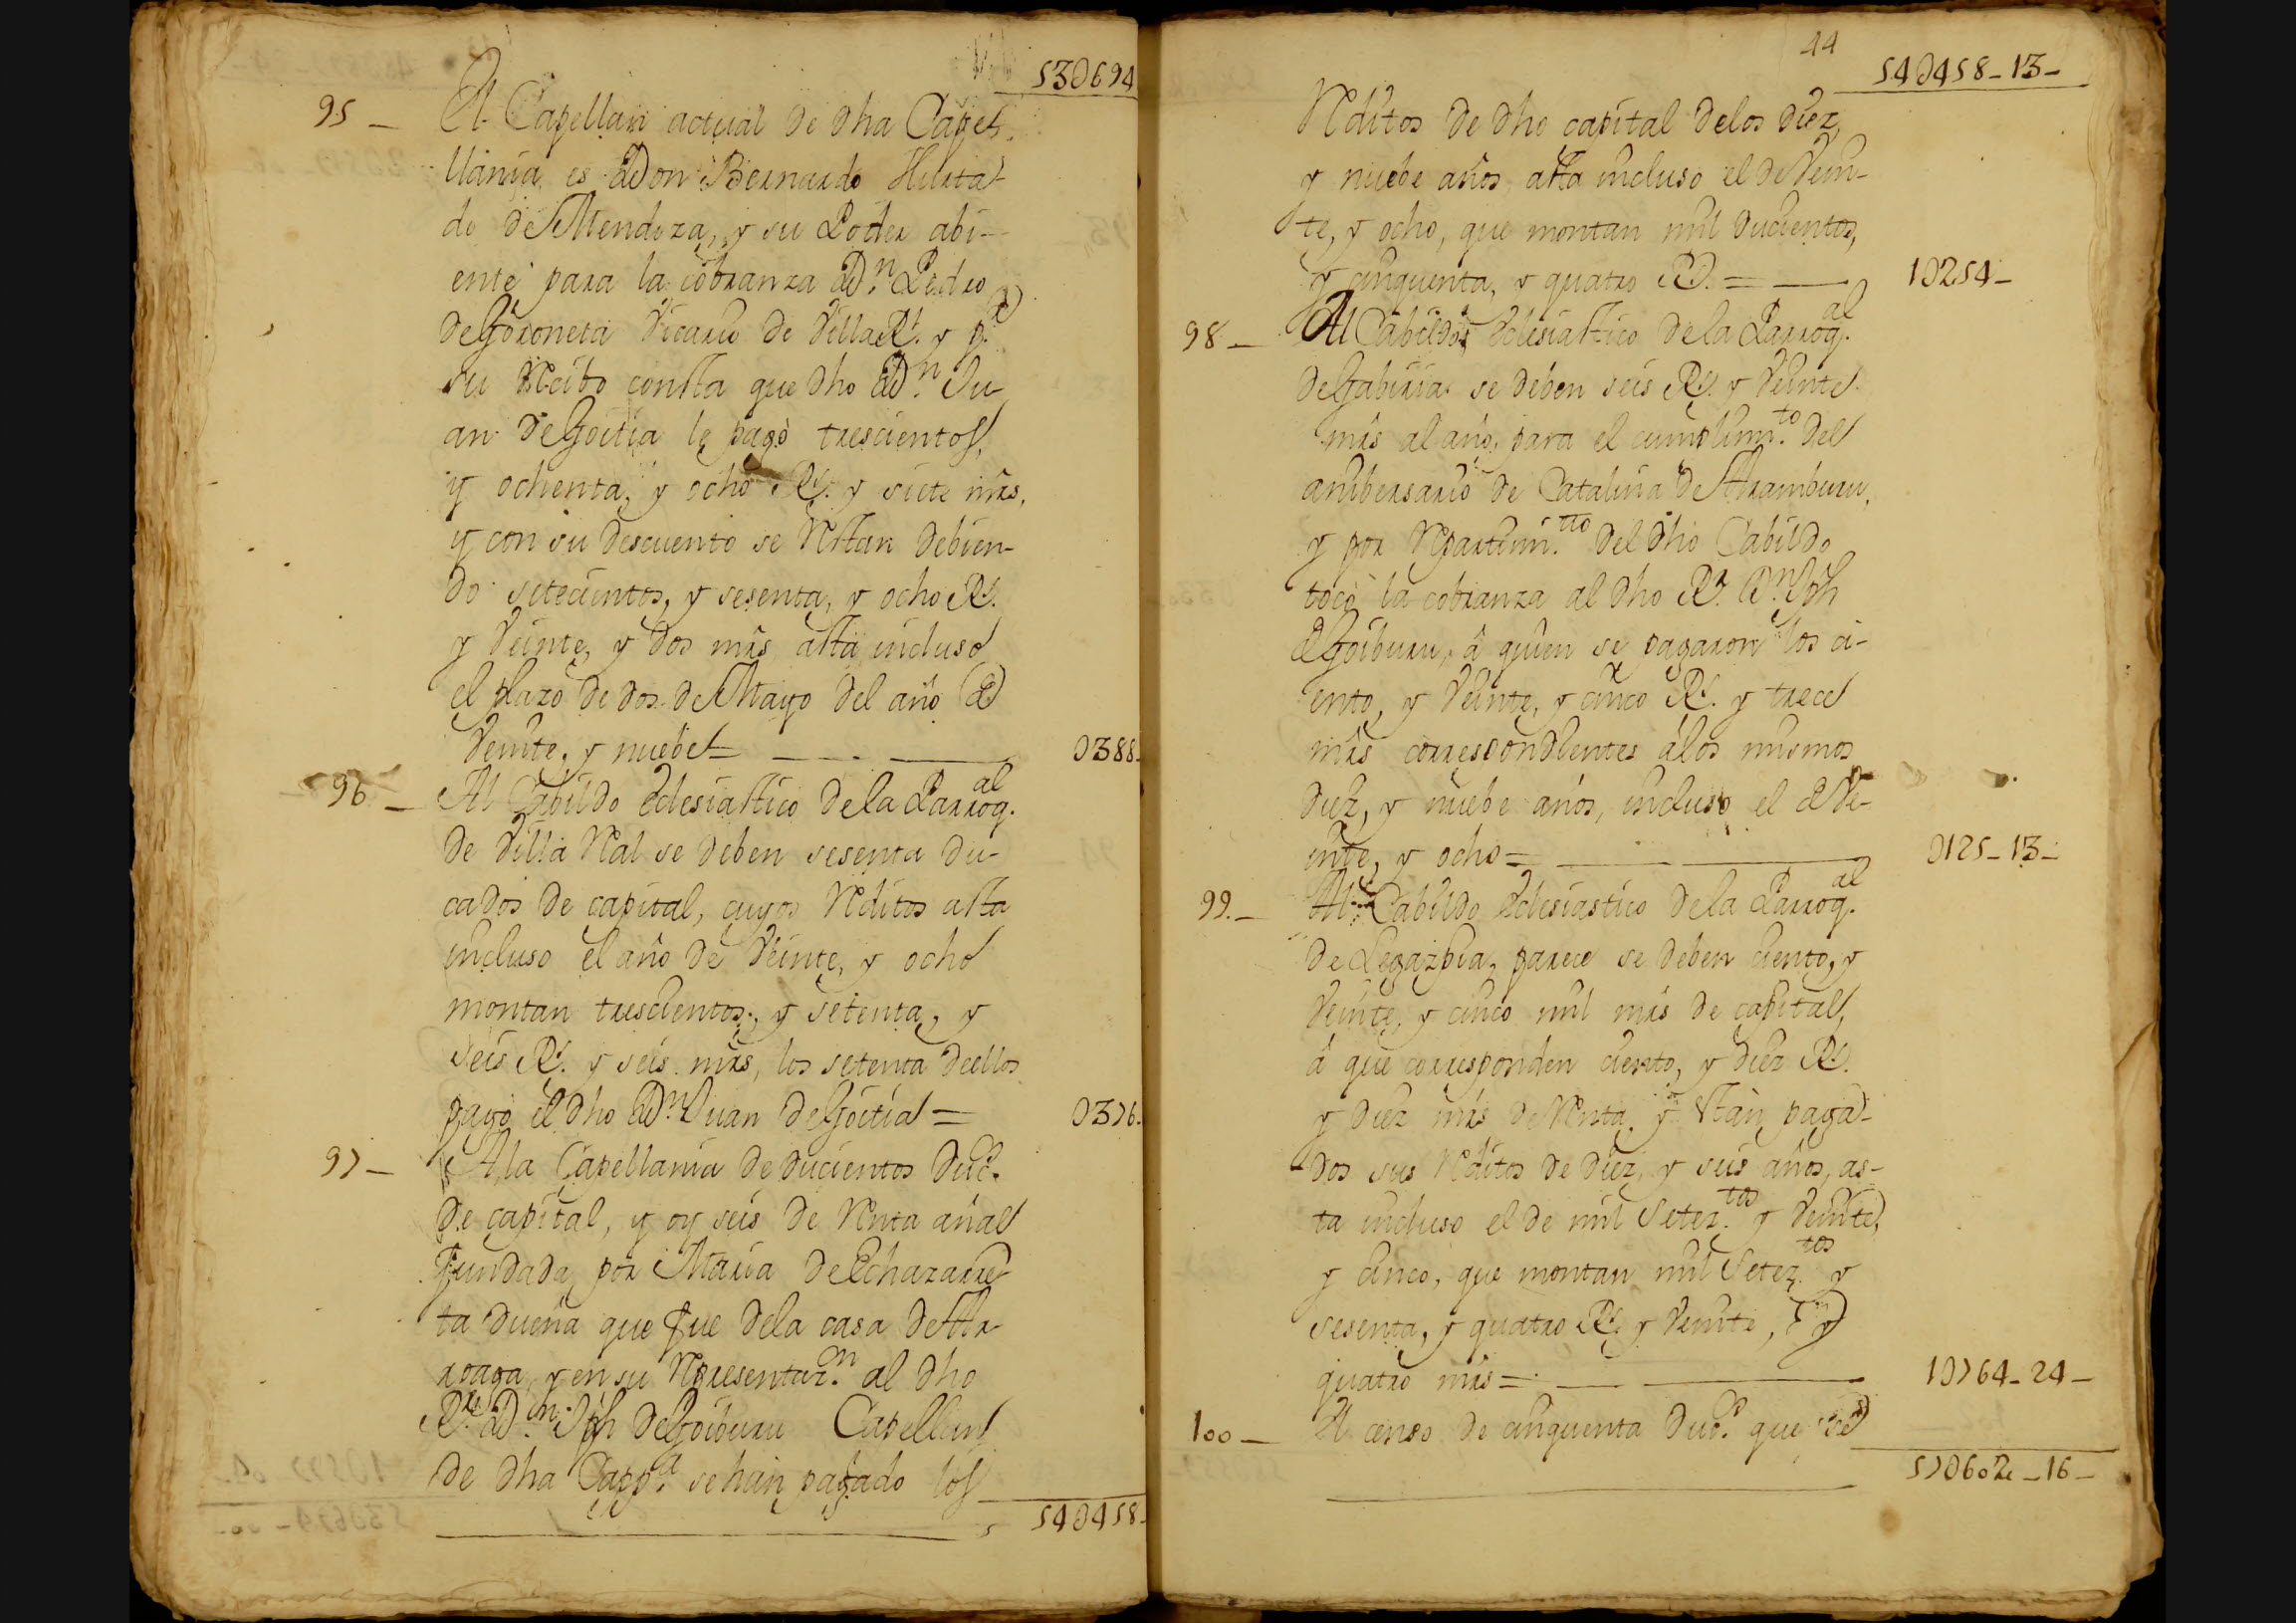 53D694
95_ El Capellan actual de dha Capel-
llania es Don Bernardo Hurta-
do de Mendoza, y su Poder abi-
ente para la cobranza Dn. Pedro
de Goroneta Vicario de Villa Rl. y pr.
su Recibo consta que dho Dn. Ju-
an de Goitia le pagò trescientos,
y ochenta, y ocho Rs. y siete mrs,
y con su descuento se restan debien-
do setecientos, y sesenta, y ocho Rs.
y Veinte, y dos mrs asta incluso
el plazo de dos de Mayo del año de
Veinte, y nuebe= 0388_
96_ Al Cabildo eclesiastico de la Parroqal.
de Villa Real se deben sesenta du-
cados de capital, cuyos Reditos asta
incluso el año de Veinte, y ocho
montan trescientos, y setenta, y
seis Rs. y seis mrs, los setenta de ellos
pagò el dho Dn. Juan de Goitia= 0376.
97_ A la Capellania de ducientos Duc.
de capital, y oy seis de Renta añal
fundada por Maria de Echazarre-
ta dueña que fue dela casa de Ar-
roaga, y en su Representazon. al dho
Rr. Dn. Jph de Goiburu Capellan
de dha Cappa. se han pagado los
54D458_
44
54D458_13_
Reditos de dho capital delos diez,
y nuebe años asta incluso el de Vein-
te, y ocho, que montan mil ducientos,
y cinquenta, y quatro Rs.= 1D254_
98_ Al Cabildo eclesiastico dela Parroqal.
de Gabiria se deben seis Rs. y Veinte
mrs al año, para el cumplimto. del
anibersario de Catalina de Aramburu,
y por Repartimto. del dho Cabildo
tocò la cobranza al dho Rr. Dn. Jph
de Goiburu, â quien se pagaron los ci-
ento, y Veinte, y cinco Rs. y trece
mrs correspondientes álos mismos
diez, y nuebe años, incluso el de Ve-
inte, y ocho= D125_13_
99_ Al Cabildo eclesiastico dela Parroqal.
de Legazpia, parece se deben ciento, y
Veinte, y cinco mil mrs de capital,
â que corresponden ciento, y diez Rs.
y diez mrs de Renta, y Stàn paga-
dos sus Reditos de diez, y seis años, as-
ta incluso el de mil Seteztos. y Veinte,
y cinco, que montan mil Seteztos. y
sesenta, y quatro Rs. y Veinte, y
quatro mrs= 1D764_24_
100_ Al censo de cinquenta Ducs. que se
57D602_16_